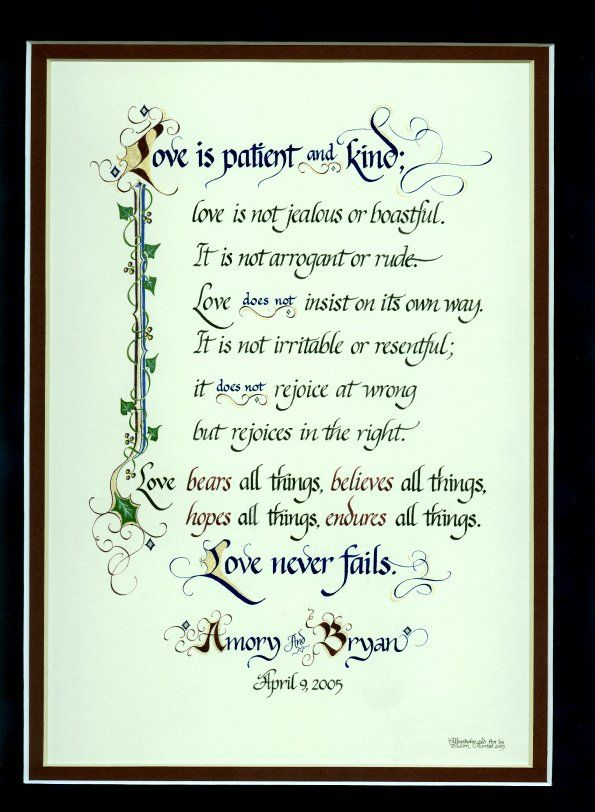 Love is patient and kind;
love is not jealous or boastful.
It is not arrogant or rude.
Love does not insist on its own way.
It is not irritable or resentful;
it does not rejoice at wrong
but rejoices in the right.
Love bears all things, believes all things,
hopes all things, endures all things.
Love never fails.
Amory and Bryan
April 9, 2005
Calligraphy and Art by
2005